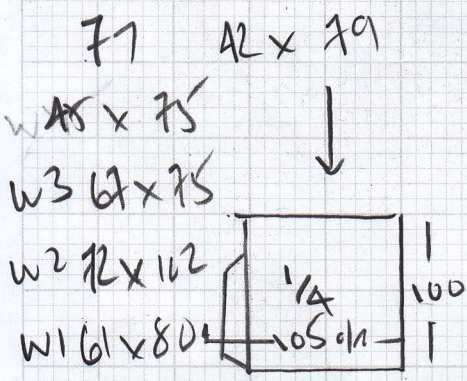 71 42 x 79
45 x 75
W3 67 x 75
W2 72 x 102
W1 61 x 80
1/4
100
105